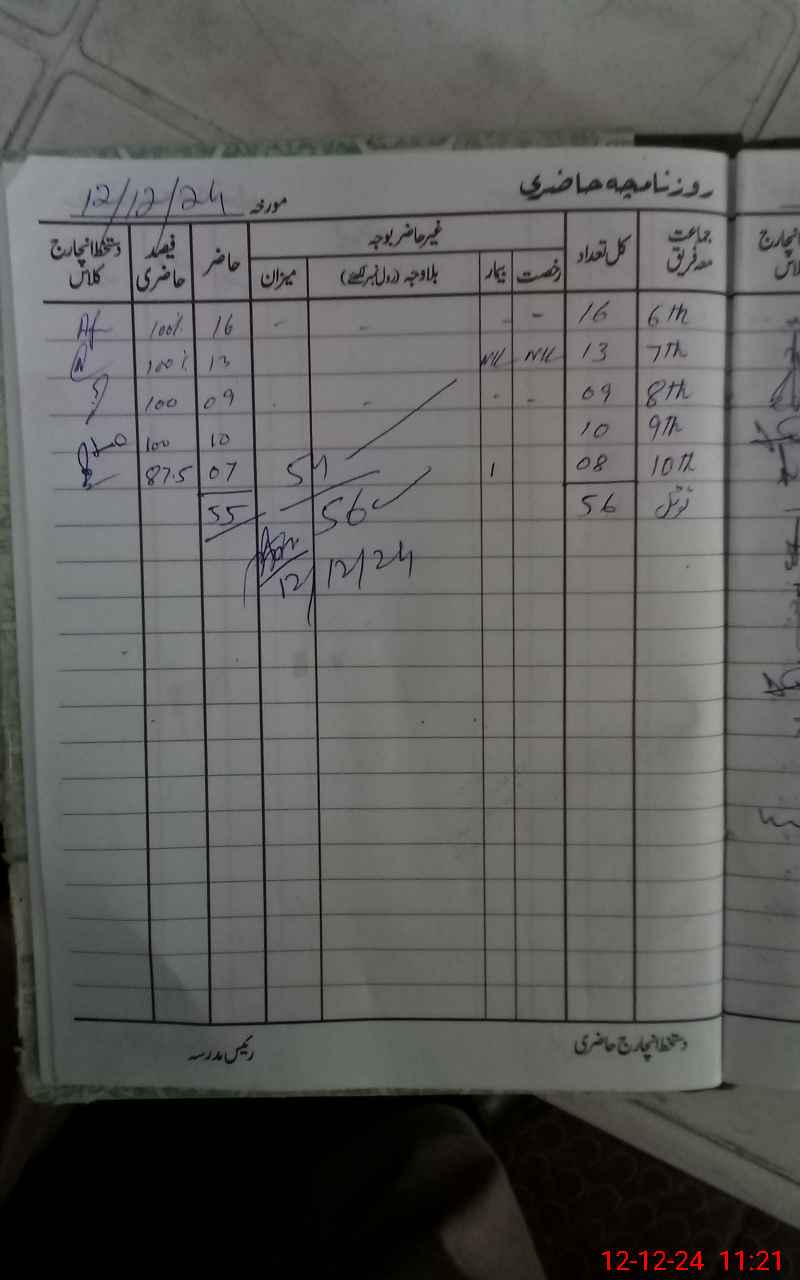 روزنامچہ حاضری
مورخہ 12/12/24
جماعت معہ فریق کل تعداد غیر حاضر بوجہ حاضر فیصد حاضری دستخط انچارج کلاس
رخصت بیمار بلاوجہ (رول نمبر لکھئے) میزان
6th 16 - - - - 16 100%
7th 13 Nil Nil 13 100%
8th 09 - - - . 09 100
9th 10 10 100
10th 08 1 07 87.5
ٹوٹل 56 55
56
12/12/24
دستخط انچارج حاضری
رئیس مدرسہ
انچارج
12-12-24 11:21